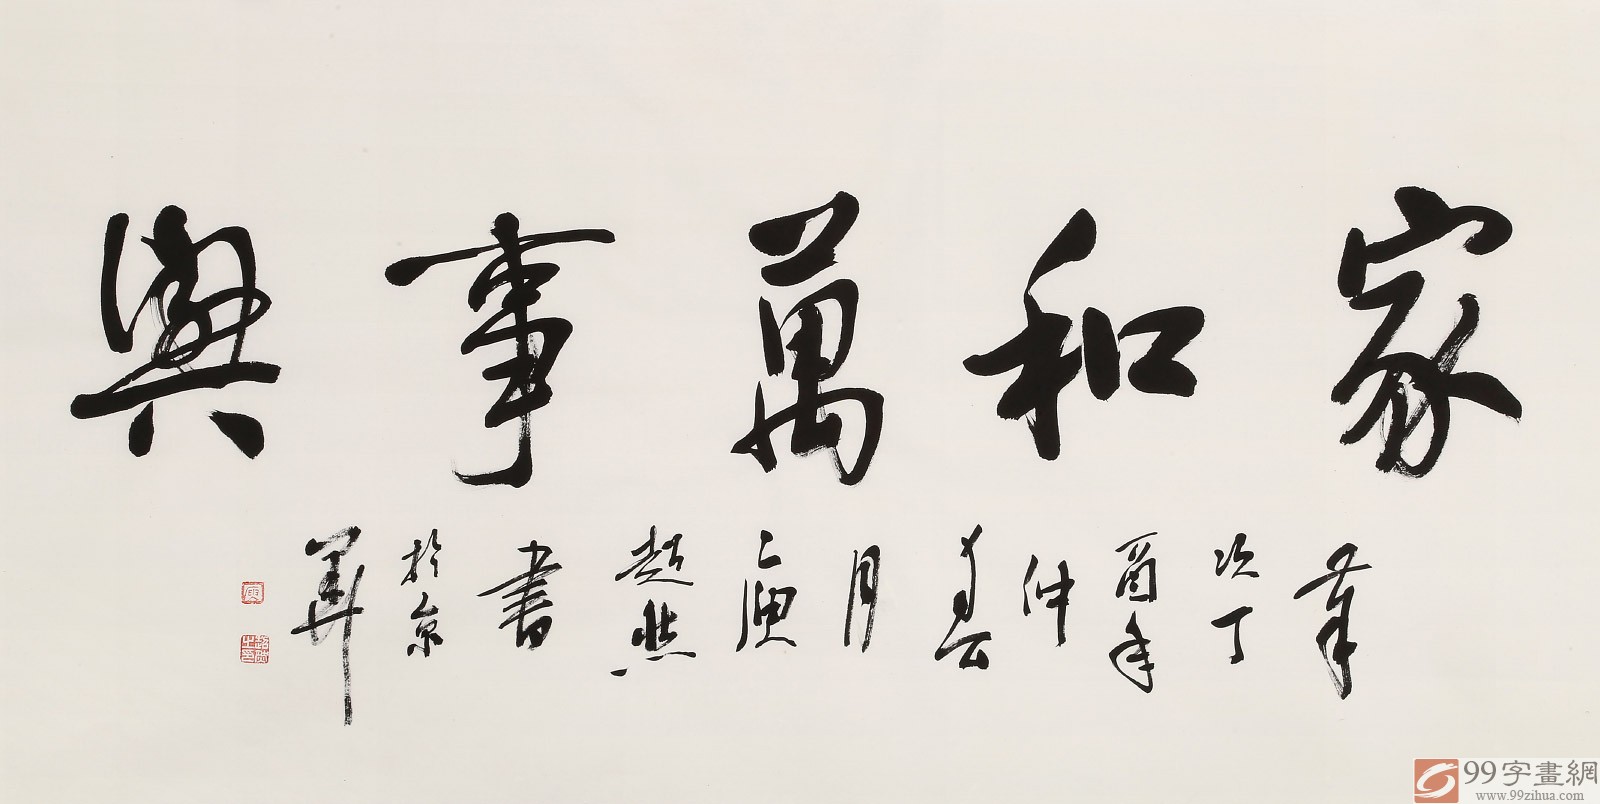 家和萬事興
歲次丁酉年仲春月超然書於京華
99字畫網
www.99zihua.com